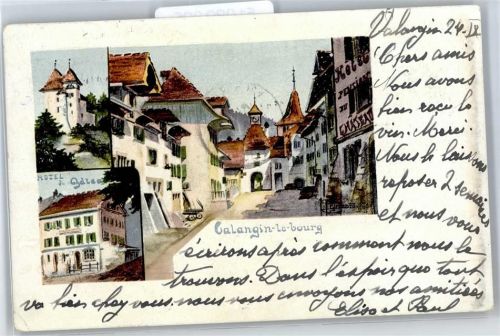 Valangin 24
Chers amis
Nous avons
bien reçu le
vin. Merci.
Nous le laissons
reposer 2 semaines
et nous vous
écrirons après comment nous le
trouvons. Dans l'espoir que tout
va bien chez vous nous vous envoyons nos amitiés
Elise et Paul
HOTEL
du Château
Hôtel
PENSION
DU
CHATEAU
Valangin-le-bourg